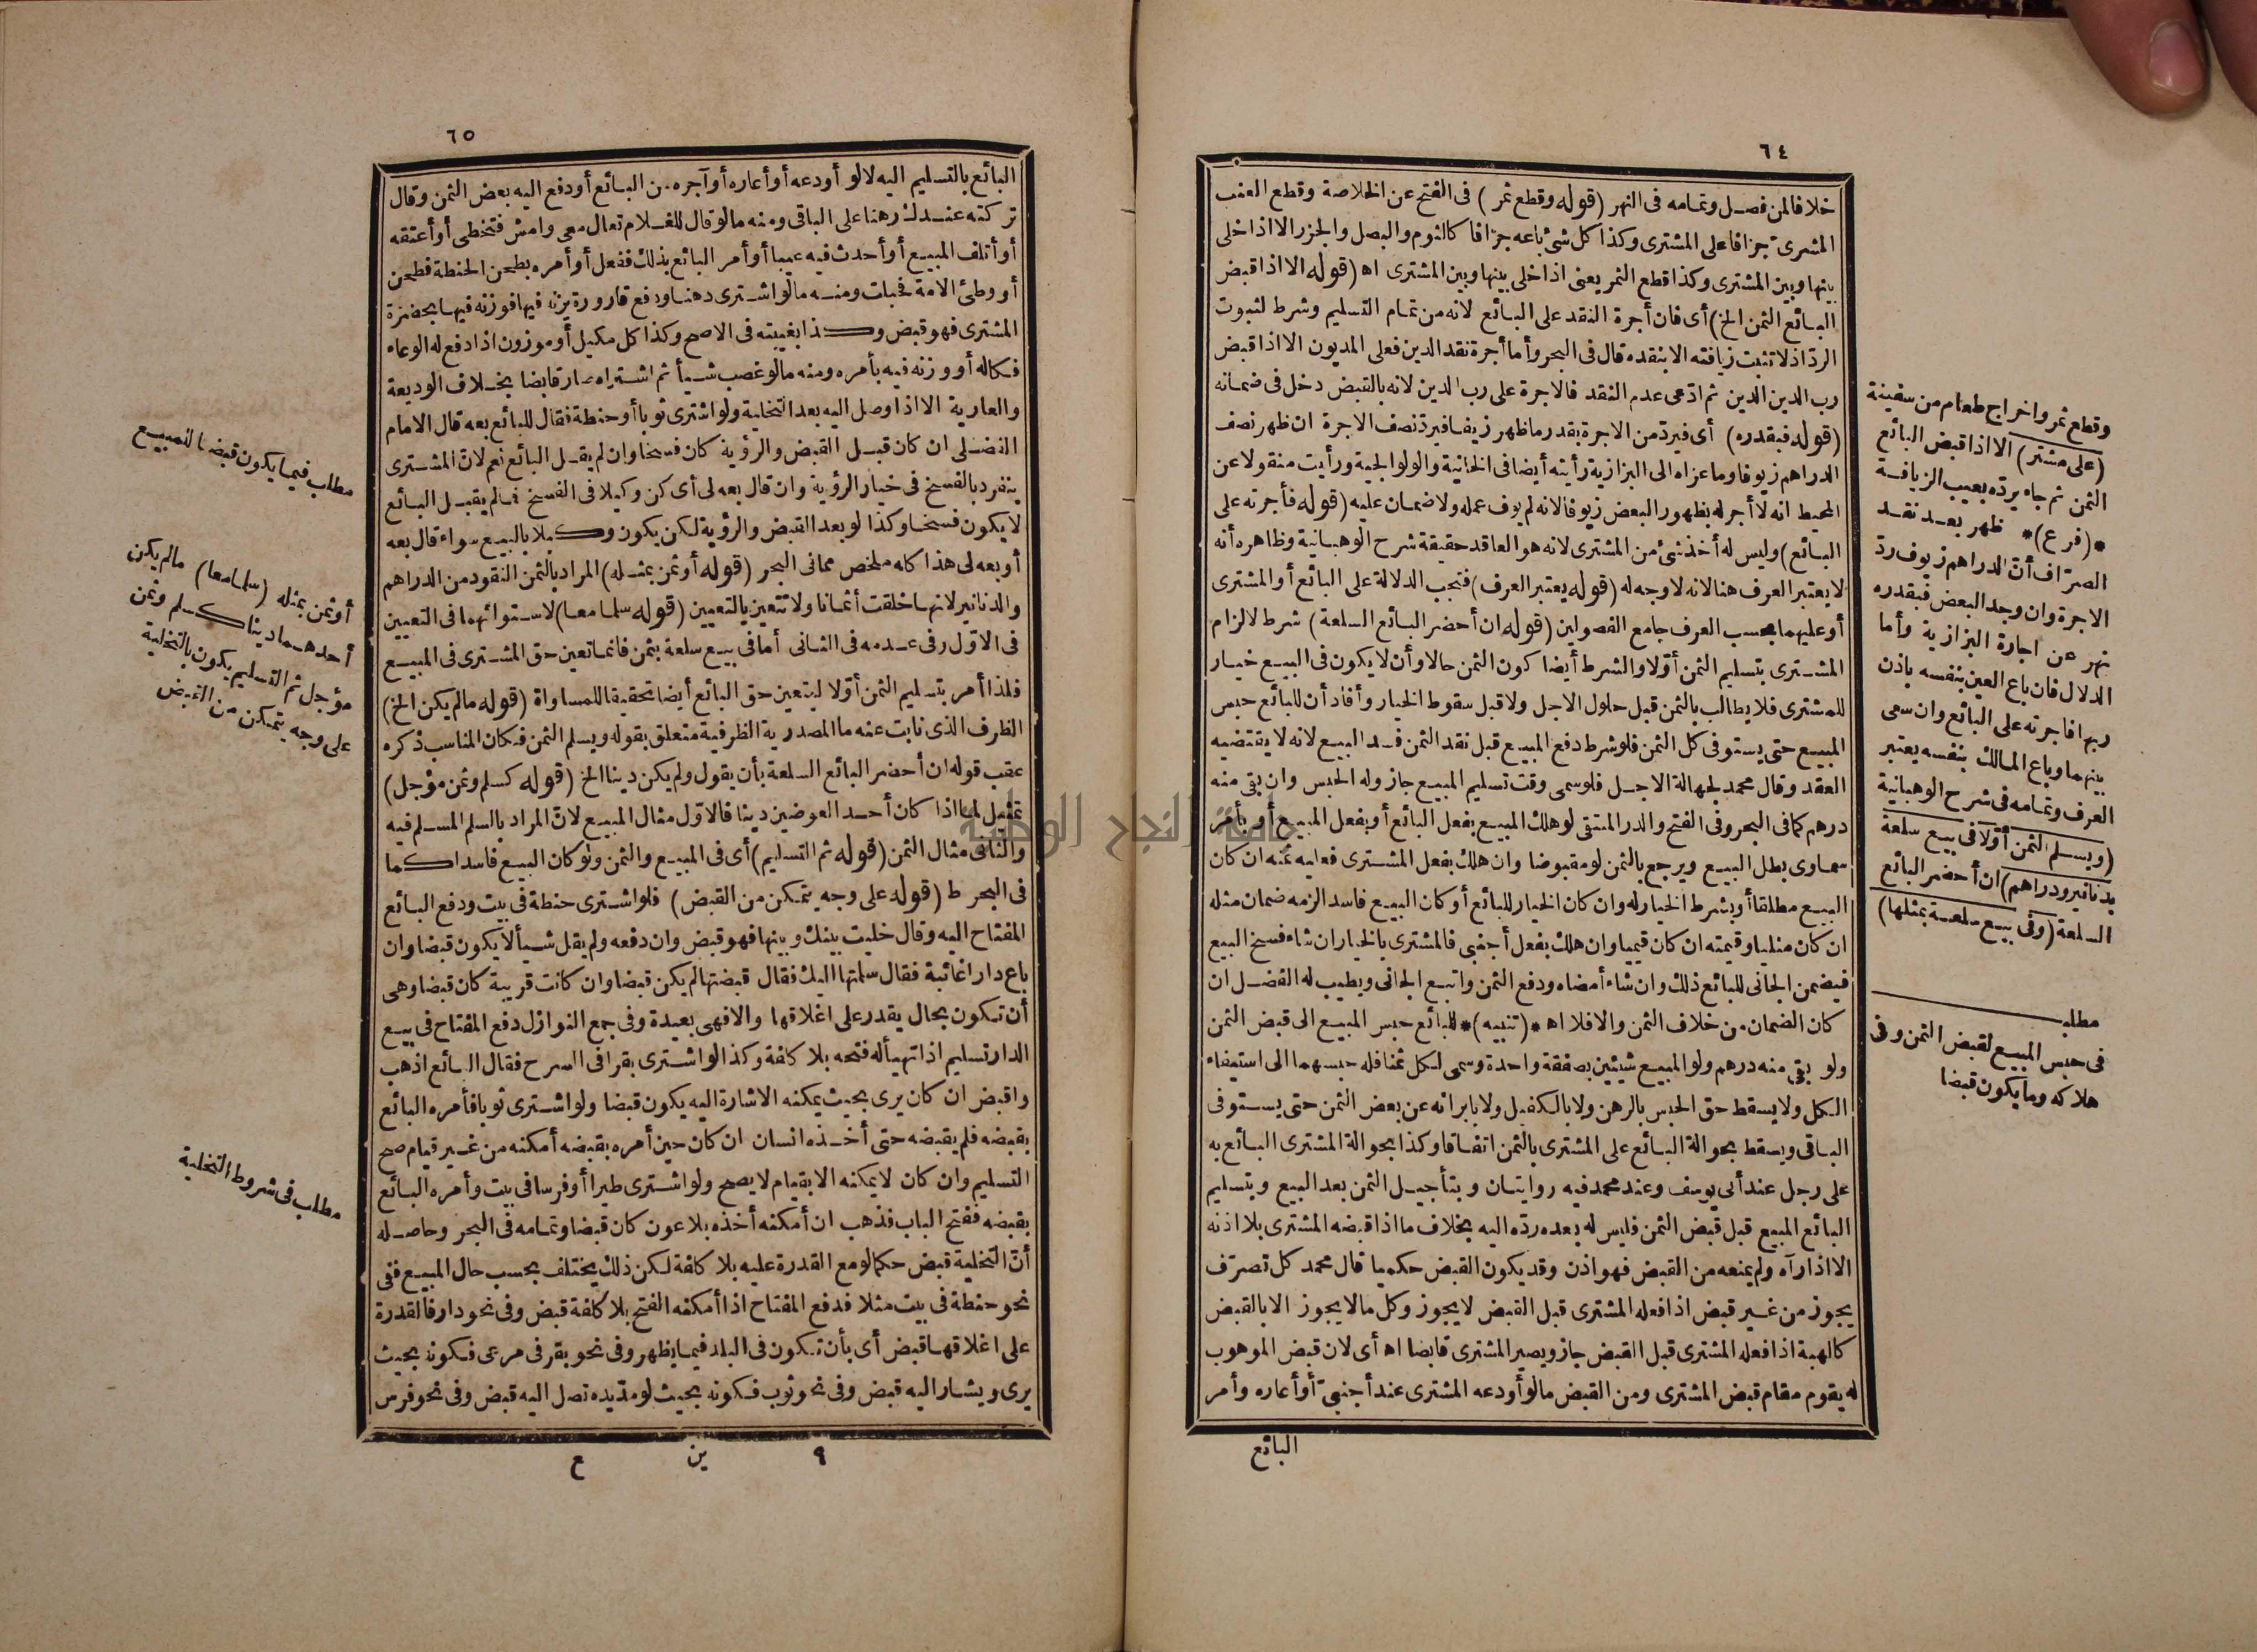 ٦٤
خلافا لمن فصل وتمامه فى النهر (قوله وقطع ثمر) فى الفتح عن الخلاصة وقطع العنب
المشرى جزافا على المشترى وكذا كل شئ باعه جزافا كالثوم والبصل والجزر الا اذا خلى
بينها وبين المشترى وكذا قطع الثمر يعنى اذا خلى بينها وبين المشترى اه (قوله الا اذا قبض
البائع الثمن الخ) أى فان أجرة النقد على البائع لانه من تمام التسليم وشرط لثبوت
الرد اذ لا تثبت زيافته الا بنقده قال فى البحر وأما أجرة نقد الدين فعلى المديون الا اذا قبض
رب الدين الدين ثم ادّعى عدم النقد فالاجرة على رب الدين لانه بالقبض دخل فى ضمانه
(قوله فبقدره) أى فيردّ من الاجرة بقدر ما ظهر زيفا فيردّ نصف الاجرة ان ظهر نصف
الدراهم زيوفا وما عزاه الى البزازية رأيته أيضا فى الخانية والولوالجية ورأيت منقولا عن
المحيط انه لا أجر له بظهور البعض زيوفا لانه لم يوف عمله ولا ضمان عليه (قوله فأجرته على
البائع) وليس له أخذ شئ من المشترى لانه هو العاقد حقيقة شرح الوهبانية وظاهره أنه
لا يعتبر العرف هنا لانه لا وجه له (قوله يعتبر العرف) فتجب الدلالة على البائع أو المشترى
أو عليهما بحسب العرف جامع الفصولين (قوله ان أحضر البائع السلعة) شرط لالزام
المشترى بتسليم الثمن أوّلا والشرط أيضا كون الثمن حالا وأن لا يكون فى البيع خيار
للمشترى فلا يطالب بالثمن قبل حلول الاجل ولا قبل سقوط الخيار وأفاد أن للبائع حبس
المبيع حتى يستوفى كل الثمن فلو شرط دفع المبيع قبل نقد الثمن فسد البيع لانه لا يقتضيه
العقد وقال محمد لجهالة الاجل فلو سمى وقت تسليم المبيع جاز وله الحبس وان بقى منه
درهم كما فى البحر وفى الفتح والدر المنتقى لو هلك المبيع بفعل البائع أو بفعل المبيع أو بأمر
سماوى بطل البيع ويرجع بالثمن لو مقبوضا وان هلك بفعل المشترى فعليه ثمنه ان كان
البيع مطلقا أو بشرط الخيار له وان كان الخيار للبائع أو كان البيع فاسدا لزمه ضمان مثله
ان كان مثليا وقيمته ان كان قيميا وان هلك بفعل أجنبى فالمشترى بالخيار ان شاء فسخ البيع
فيضمن الجانى للبائع ذلك وان شاء أمضاه ودفع الثمن واتبع الجانى ويطيب له الفضل ان
كان الضمان من خلاف الثمن والا فلا اه *(تنبيه)* للبائع حبس المبيع الى قبض الثمن
ولو بقى منه درهم ولو المبيع شيئين بصفقة واحدة وسمى لكل ثمنا فله حبسهما الى استيفاء
الكل ولا يسقط حق الحبس بالرهن ولا بالكفيل ولا بابرائه عن بعض الثمن حتى يستوفى
الباقى ويسقط بحوالة البائع على المشترى بالثمن اتفاقا وكذا بحوالة المشترى البائع به
على رجل عند أبى يوسف وعند محمد فيه روايتان وبتأجيل الثمن بعد البيع وبتسليم
البائع المبيع قبل قبض الثمن فليس له بعده ردّه اليه بخلاف ما اذا قبضه المشترى بلا اذنه
الا اذا رآه ولم يمنعه من القبض فهو اذن وقد يكون القبض حكميا قال محمد كل تصرّف
يجوز من غير قبض اذا فعله المشترى قبل القبض لا يجوز وكل ما لا يجوز الا بالقبض
كالهبة اذا فعله المشترى قبل القبض جاز ويصير المشترى قابضا اه أى لان قبض الموهوب
له يقوم مقام قبض المشترى ومن القبض ما لو أودعه المشترى عند أجنبىّ أو أعاره وأمر
البائع
وقطع ثمر واخراج طعام من سفينة
(على مشتر) الا اذا قبض البائع
الثمن ثم جاء يردّه بعيب الزيافة
*(فرع)* ظهر بعد نقد
الصرّاف أنّ الدراهم زيوف ردّ
الاجرة وان وجد البعض فبقدره
نهر عن اجارة البزازية وأما
الدلال فان باع العين بنفسه باذن
ربها فاجرته على البائع وان سعى
بينهما وباع المالك بنفسه يعتبر
العرف وتمامه فى شرح الوهبانية
(ويسلم الثمن أوّلا فى بيع سلعة
بدنانير ودراهم) ان أحضر البائع
السلعة (وفى بيع سلعة بمثلها)
مطلب
فى حبس المبيع لقبض الثمن وفى
هلاكه وما يكون قبضا
٦٥
البائع بالتسليم اليه لا لو أودعه أو أعاره أو آجره من البائع أو دفع اليه بعض الثمن وقال
تركته عندك رهنا على الباقى ومنه ما لو قال للغلام تعال معى وامش فتخطى أو أعتقه
أو أتلف المبيع أو أحدث فيه عيبا أو أمر البائع بذلك ففعل أو أمره بطحن الحنطة فطحن
أو وطئ الامة فحبلت ومنه ما لو اشترى دهنا ودفع قارورة يزنه فيها فوزنه فيها بحضرة
المشترى فهو قبض وكذا بغيبته فى الاصح وكذا كل مكيل أو موزون اذا دفع له الوعاء
فكاله أو وزنه فيه بأمره ومنه ما لو غصب شيأ ثم اشتراه صار قابضا بخلاف الوديعة
والعارية الا اذا وصل اليه بعد التخلية ولو اشترى ثوبا أو حنطة فقال للبائع بعه قال الامام
الفضلى ان كان قبل القبض والرؤية كان فسخا وان لم يقل البائع نعم لانّ المشترى
ينفرد بالفسخ فى خيار الرؤية وان قال بعه لى أى كن وكيلا فى الفسخ فما لم يقبل البائع
لا يكون فسخا وكذا لو بعد القبض والرؤية لكن يكون وكيلا بالبيع سواء قال بعه
أو بعه لى هذا كله ملخص مما فى البحر (قوله أو ثمن بمثله) المراد بالثمن النقود من الدراهم
والدنانير لانها خلقت أثمانا ولا تتعين بالتعيين (قوله سلما معا) لاستوائهما فى التعيين
فى الاوّل وفى عدمه فى الثانى أما فى بيع سلعة بثمن فانما تعين حق المشترى فى المبيع
فلذا أمر بتسليم الثمن أوّلا ليتعين حق البائع أيضا تحقيقا للمساواة (قوله ما لم يكن الخ)
الظرف الذى نابت عنه ما المصدرية الظرفية متعلق بقوله ويسلم الثمن فكان المناسب ذكره
عقب قوله ان أحضر البائع السلعة بأن يقول ولم يكن دينا الخ (قوله كسلم وثمن مؤجل)
تمثيل لما اذا كان أحد العوضين دينا فالاوّل مثال المبيع لانّ المراد بالسلم المسلم فيه
والثانى مثال الثمن (قوله ثم التسليم) أى فى المبيع والثمن ولو كان البيع فاسدا كما
فى البحر ط (قوله على وجه يتمكن من القبض) فلو اشترى حنطة فى بيت ودفع البائع
المفتاح اليه وقال خليت بينك وبينها فهو قبض وان دفعه ولم يقل شيأ لا يكون قبضا وان
باع دارا غائبة فقال سلمتها اليك فقال قبضتها لم يكن قبضا وان كانت قريبة كان قبضا وهى
أن تكون بحال يقدر على اغلاقها والا فهى بعيدة وفى جمع النوازل دفع المفتاح فى بيع
الدار تسليم اذا تهيأ له فتحه بلا كلفة وكذا لو اشترى بقرا فى السرح فقال البائع اذهب
واقبض ان كان يرى بحيث يمكنه الاشارة اليه يكون قبضا ولو اشترى ثوبا فأمره البائع
بقبضه فلم يقبضه حتى أخذه انسان ان كان حين أمره بقبضه أمكنه من غير قيام صح
التسليم وان كان لا يمكنه الا بقيام لا يصح ولو اشترى طيرا أو فرسا فى بيت وأمره البائع
بقبضه ففتح الباب فذهب ان أمكنه أخذه بلا عون كان قبضا وتمامه فى البحر وحاصله
أنّ التخلية قبض حكما لو مع القدرة عليه بلا كلفة لكن ذلك يختلف بحسب حال المبيع ففى
نحو حنطة فى بيت مثلا فدفع المفتاح اذا أمكنه الفتح بلا كلفة قبض وفى نحو دار فالقدرة
على اغلاقها قبض أى بأن تكون فى البلد فيما يظهر وفى نحو بقر فى مرعى فكونه بحيث
يرى ويشار اليه قبض وفى نحو ثوب فكونه بحيث لو مدّ يده تصل اليه قبض وفى نحو فرس
٩ ين ع
مطلب فيما يكون قبضا للمبيع
أو ثمن بمثله (سلما معا) ما لم يكن
أحدهما دينا كسلم وثمن
مؤجل ثم التسليم يكون بالتخلية
على وجه يتمكن من القبض
مطلب فى شروط التخلية
جامعة النجاح الوطنية